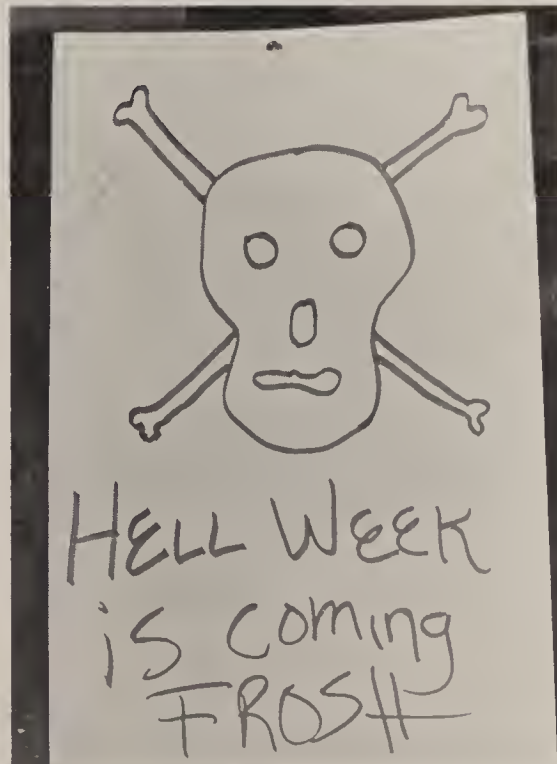 HELL WEEK
is coming
FROSH